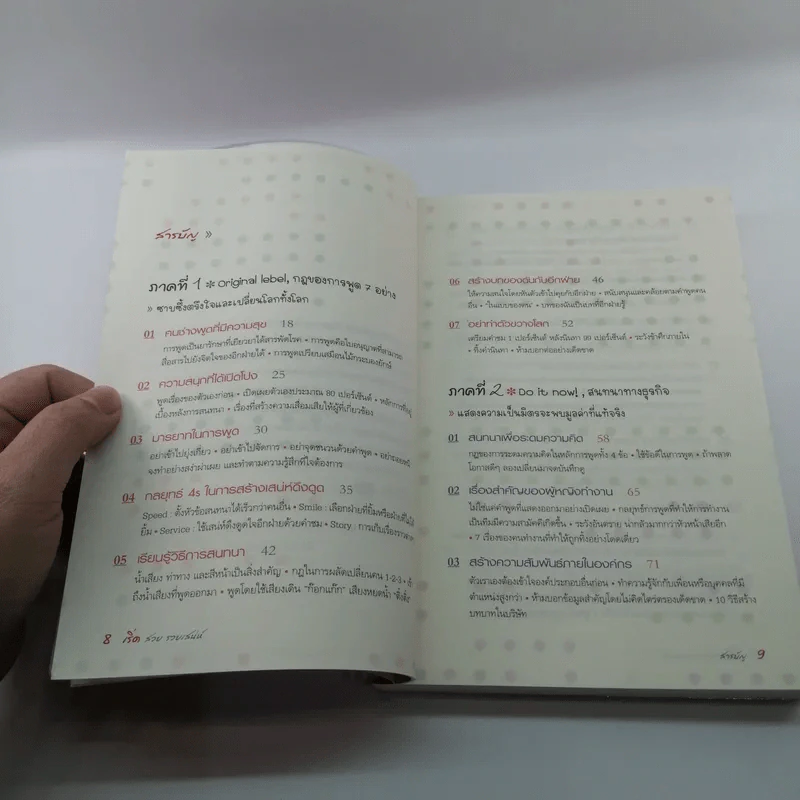 สารบัญ »
ภาคที่ 1 * original lebel, กฎของการพูด 7 อย่าง
» ซาบซึ้งตรึงใจและเปลี่ยนโลกทั้งโลก
01 คนช่างพูดที่มีความสุข 18
การพูดเป็นยารักษาที่เยียวยาได้สารพัดโรค • การพูดคือใบอนุญาตที่สามารถ
สื่อสารไปยังจิตใจของอีกฝ่ายได้ • การพูดเปรียบเสมือนไม้กระบองของยักษ์
02 ความสนุกที่ได้เปิดโปง 25
พูดเรื่องของตัวเองก่อน • เปิดเผยตัวเองประมาณ 80 เปอร์เซ็นต์ •
เบื้องหลังการสนทนา • เรื่องที่สร้างความเสื่อมเสียให้ผู้ที่เกี่ยวข้อง
03 มารยาทในการพูด 30
อย่าเข้าไปยุ่งเกี่ยว • อย่าเข้าไปจัดการ • อย่าจุดชนวนด้วยคำพูด •
จงทำอย่างสง่าผ่าเผย และทำตามความรู้สึกที่ใจต้องการ
04 กลยุทธ์ 4s ในการสร้างเสน่ห์ดึงดูด 35
Speed : ตั้งหัวข้อสนทนาได้เร็วกว่าคนอื่น • Smile : เลือกฝ่ายที่ยิ้มหรือฝ่ายที่ไม่
ยิ้ม • Service : ใช้เสน่ห์ดึงดูดใจอีกฝ่ายด้วยคำชม • Story : การเก็บเรื่องราว
05 เรียนรู้วิธีการสนทนา 42
น้ำเสียง ท่าทาง และสีหน้าเป็นสิ่งสำคัญ • กฎในการผลัดเปลี่ยนคน 1-2-3 •
ถึงน้ำเสียงที่พูดออกมา • พูดโดยใช้เสียงเดิน "ก๊อกแก๊ก" เสียงหยดน้ำ "ติ๋งติ๋ง"
8 เริ่ด สวย รวยเสน่ห์
06 สร้างบทของฉันกับอีกฝ่าย 46
ให้ความสนใจโดยหันตัวเข้าไปคุยกับอีกฝ่าย • สนับสนุนและคล้อยตามคำพูดคน
อื่น • "ในแบบของคน" • บทของฉันเป็นบทที่อีกฝ่ายรู้
07 อย่าทำตัวขวางโลก 52
เตรียมคำชม 1 เปอร์เซ็นต์ หลังนินทา 99 เปอร์เซ็นต์ • ระวังข้าศึกภายใน
• ทิ้งคำนินทา • ห้ามบอกต่ออย่างเด็ดขาด
ภาคที่ 2 * Do it now!, สนทนาทางธุรกิจ
» แสดงความเป็นมิตรจะพบมูลค่าที่แท้จริง
01 สนทนาเพื่อระดมความคิด 58
กฎของการระดมความคิดในหลักการพูดทั้ง 4 ข้อ • ใช้ข้อดีในการพูด • ถ้าพลาด
โอกาสดีๆ ลองเปลี่ยนมาจดบันทึกดู
02 เรื่องสำคัญของผู้หญิงทำงาน 65
ไม่ใช่แค่คำพูดที่แสดงออกมาอย่างเปิดเผย • กลยุทธ์การพูดที่ทำให้การทำงาน
เป็นทีมมีความสามัคคีเกิดขึ้น • ระวังอันตราย น่ากลัวมากกว่าหัวหน้าเสียอีก
• 7 เรื่องของคนทำงานที่ทำให้ถูกทิ้งอย่างโดดเดี่ยว
03 สร้างความสัมพันธ์ภายในองค์กร 71
ตัวเราเองต้องเข้าใจองค์ประกอบอื่นก่อน • ทำความรู้จักกับเพื่อนหรือบุคคลที่มี
ตำแหน่งสูงกว่า • ห้ามบอกข้อมูลสำคัญโดยไม่คิดไตร่ตรองเด็ดขาด • 10 วิธีสร้าง
บทบาทในบริษัท
สารบัญ 9